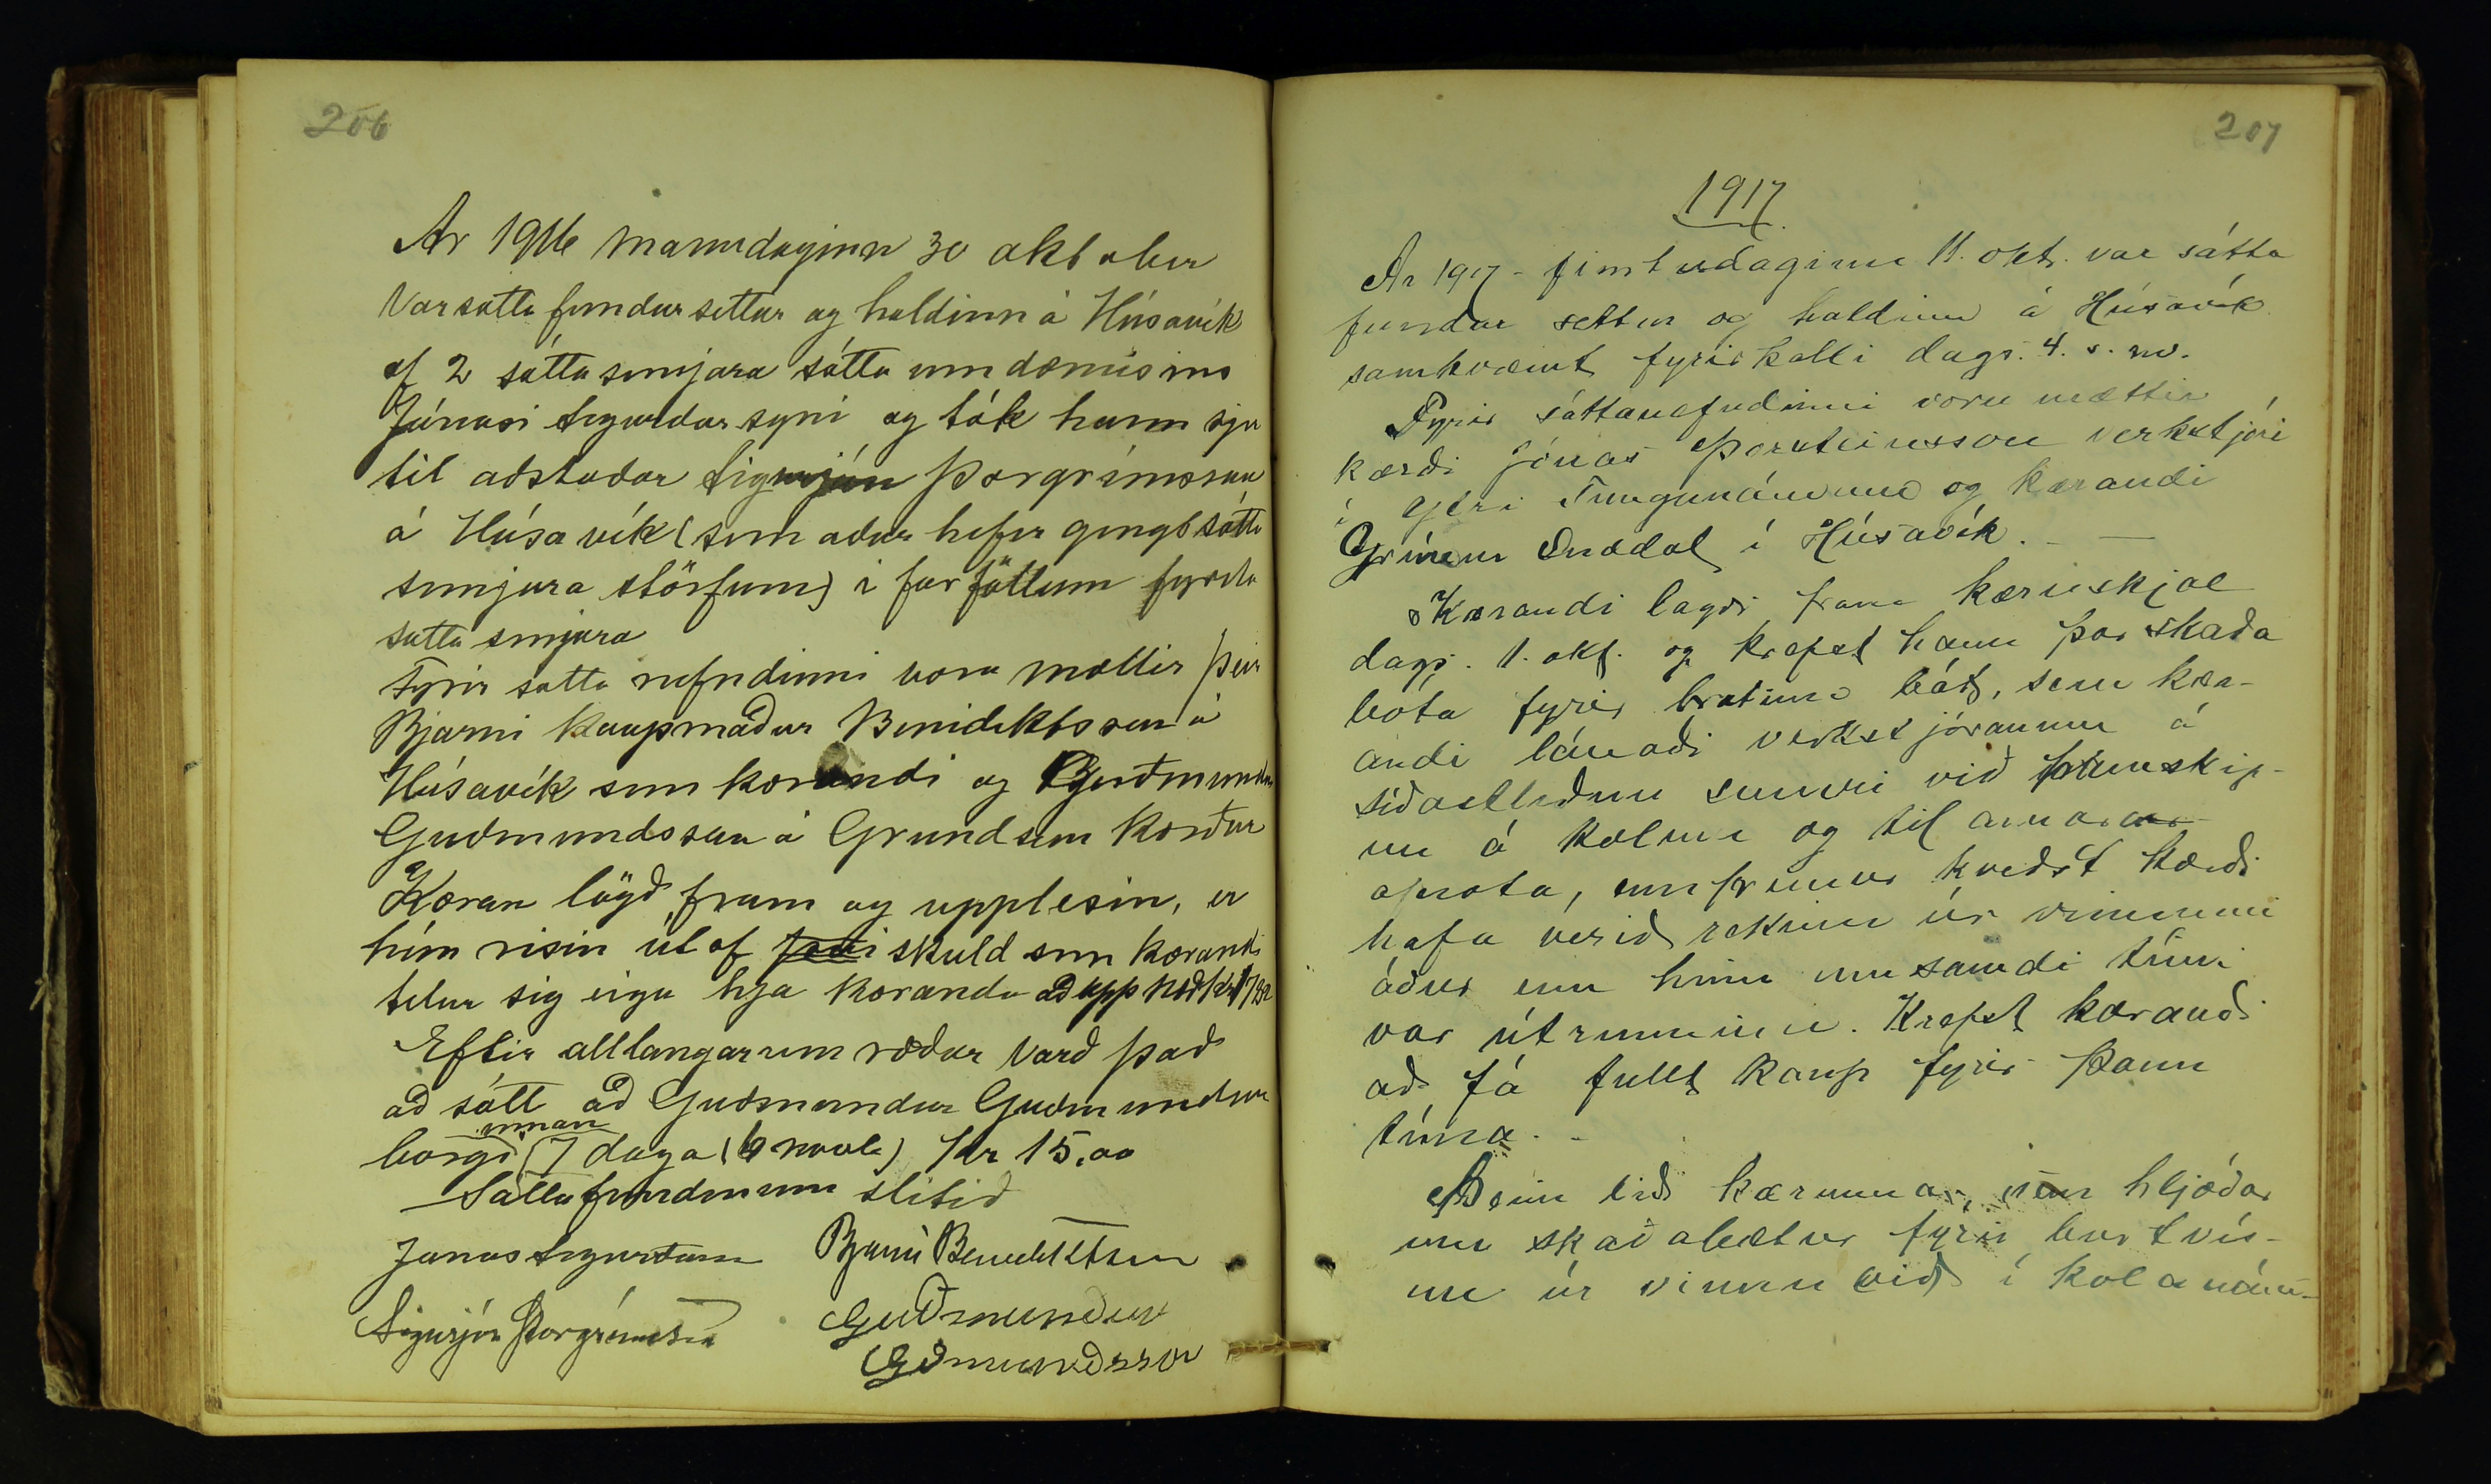 206
Ár 1916 mánudaginn 30 oktober
Var sátta fundur settur og haldinn á Húsavík
af 2 sáttasemjara sátta umdæmisins
Jónasi Sigurdarsyni og tók hann sjer
til aðstoðar Sigurjón Þorgrímsson
á Húsavík (sem aður hefir gengt sátta
semjara störfum) í forföllum fyrsta
sátta semjara
Fyrir sátta nefndinni voru mættir þeir
Bjarni kaupmaður Benidiktsson á
Húsavík sem kærandi og Guðmundur
Guðmundsson á Grund sem kærður
Kæran lögð fram og upplesin, er
hún risin út af skuld sem kærandi
telur sig eiga hjá kæranda að upp hæð kr
Eftir alllangar um ræður varð það
að sátt að Guðmundur Guðmundsson
borgi innan 7 daga (6 novb) kr 15.00
Sáttafundinum slitið
Jónas Sigurðsson Bjarni Benediktsson
Sigurjón Þorgrímsson Guðmundur
Gðmundsson
207
1917.
Ár 1917 - fimtudaginn 11. okt. var sátta
fundur settur og haldinn á Húsavík
samkvæmt fyrirkalli dags. 4. s. m.
Fyrir sáttanefndinni voru mættir
kærði Jónas Þorsteinsson verkstjóri
í Ytri Tungunámum og kærandi
Grímur Snædal í Húsavík. -
Kærandi lagði fram kæruskjal
dags. 1. okt. og krefst hann þar skaða
bóta fyrir brotinn bát, sem kær-
andi lánaði verkstjóranum á
síðastliðnu sumri við framskip-
un á kolum og til annara
afnota, ennfremur kveðst
hafa verið rekinn úr vinnunni
áður enn hinn umsamdi tími
var útrunninn. Krefst kærandi
að fá fullt kaup fyrir þann
tíma. -
Þeim lið kærunnar, sem hljóðar
um skaðabætur fyrir burtvís-
un úr vinnu við í kolanám-